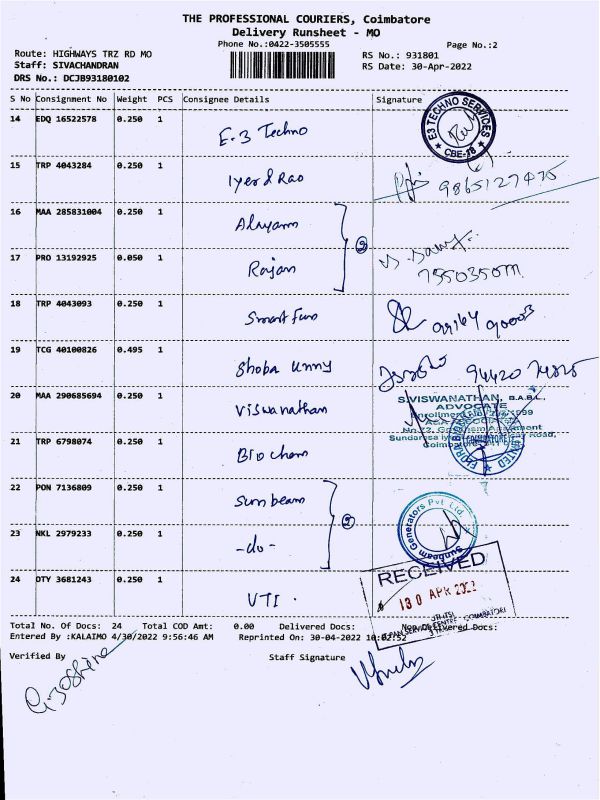 THE PROFESSIONAL COURIERS, Coimbatore
Delivery Runsheet - MO
Phone No.:0422-3505555 Page No.:2
Route: HIGHWAYS TRZ RD MO RS No.: 931801
Staff: SIVACHANDRAN RS Date: 30-Apr-2022
DRS No.: DCJB93180102
S No Consignment No Weight PCS Consignee Details Signature
14 EDQ 16522578 0.250 1 E-3 Techno
E3 TECHNO SERVICES CBE-18
15 TRP 4043284 0.250 1 Iyer & Rao
16 MAA 285831004 0.250 1 2
17 PRO 13192925 0.050 1 Rajan
18 TRP 4043093 0.250 1 Smart
19 TCG 40100826 0.495 1 Shoba Unny
20 MAA 290685694 0.250 1 Viswanathan
S.VISWANATHAN, B.A.B.L.,
ADVOCATE
21 TRP 6798074 0.250 1 Bio chem
22 PON 7136809 0.250 1 Sunbeam 2
Sunbeam Generators Pvt Ltd.
23 NKL 2979233 0.250 1 -do-
24 OTY 3681243 0.250 1 VTI.
RECEIVED
30 APR 2022
Total No. Of Docs: 24 Total COD Amt: 0.00 Delivered Docs: Non Delivered Docs:
Entered By :KALAIMO 4/30/2022 9:56:46 AM Reprinted On: 30-04-2022 10:02:52
Verified By Staff Signature